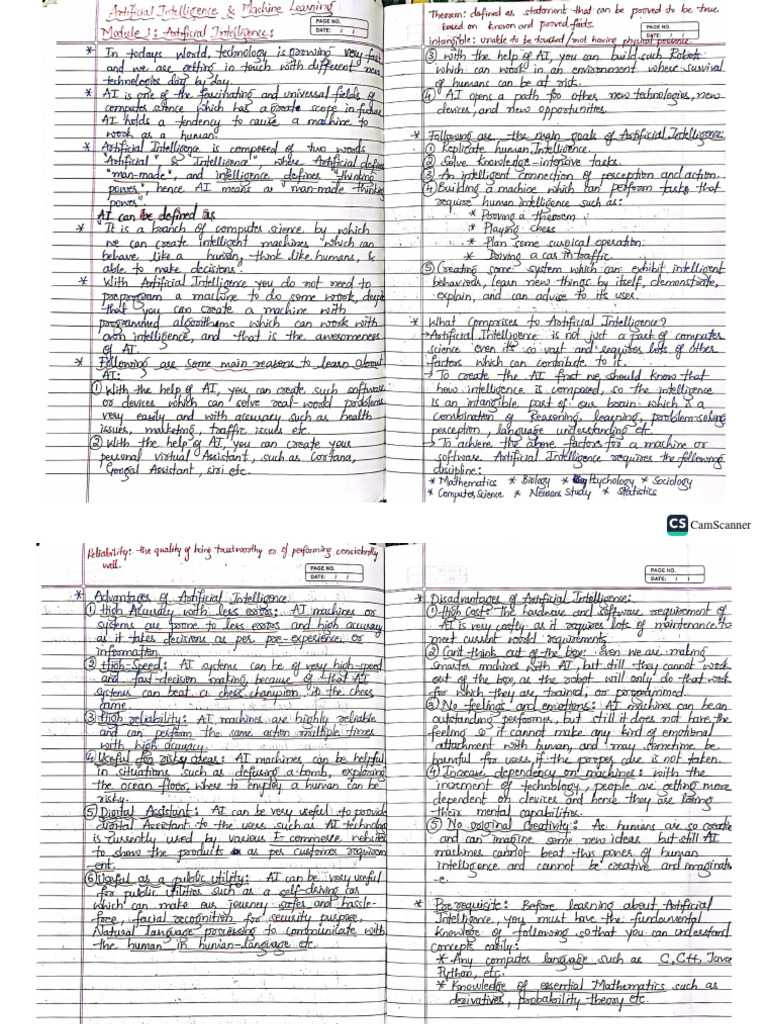 Artificial Intelligence & Machine Learning
PAGE NO.
DATE: / /
Module 1: Artificial Intelligence:
* In todays world, technology is growing very fast
and we are getting in touch with different new
technologies day by day.
* AI is one of the fascinating and universal fields of
computer science which has a great scope in future
AI holds a tendency to cause a machine to
work as a human.
* Artificial Intelligence is composed of two words
"Artificial" & "Intelligence", where Artificial defines
"man-made", and intelligence defines "thinking
power", hence AI means as "man-made thinking
power"
AI can be defined as
* "It is a branch of computer science by which
we can create intelligent machines which can
behave like a human, think like humans, &
able to make decisions."
* With Artificial Intelligence you do not need to
preprogram a machine to do some work, despite
that you can create a machine with
programmed algorithms which can work with
own intelligence, and that is the awesomeness
of AI.
* Following are some main reasons to learn about
AI:
① With the help of AI, you can create such software
or devices which can solve real-world problems
very easily and with accuracy such as health
issues, marketing, traffic issues etc.
② With the help of AI, you can create your
personal virtual Assistant, such as Cortana,
Googal Assistant, siri etc.
Theorem: defined as statement that can be proved to be true
based on known and proved facts.
PAGE NO.
DATE: / /
intangible: unable to be touched / not having physical presence
③ with the help of AI, you can build such Robots
which can work in an environment where survival
of humans can be at risk.
④ AI opens a path for other new technologies, new
devices, and new opportunities.
* Following are the main goals of Artificial Intelligence:
① Replicate human Intelligence.
② Solve knowledge-intensive tasks.
③ An intelligent connection of perception and action.
④ Building a machine which can perform tasks that
require human intelligence such as:
* Proving a theorem
* Playing chess
* Plan some surgical operation.
* Driving a car in traffic.
⑤ Creating some system which can exhibit intelligent
behaviors, learn new things by itself, demonstrate,
explain, and can advise to its user.
* What Comprises to Artificial Intelligence?
→ Artificial Intelligence is not just a part of computer
science even its so vast and requires lots of other
factors which can contribute to it.
→ To create the AI first we should know that
how intelligence is composed, so the intelligence
is an intangible part of our brain which is a
combination of Reasoning, learning, problem-solving
perception, language understanding etc.
→ To achieve the above factors for a machine or
software. Artificial Intelligence requires the following
discipline:
* Mathematics * Biology * Psychology * Sociology
* Computer Science * Neurons Study * Statistics
CS CamScanner
Reliability: the quality of being trustworthy or of performing consistently
well.
PAGE NO.
DATE: / /
* Advantages of Artificial Intelligence
① High Accuracy with less errors: AI machines or
systems are prone to less errors and high accuracy
as it takes decisions as per pre-experience or
information.
② High-Speed: AI systems can be of very high-speed
and fast-decision making, because of that AI
systems can beat a chess champion in the chess
game.
③ High reliability: AI machines are highly reliable
and can perform the same action multiple times
with high accuracy.
④ Useful for risky areas: AI machines can be helpful
in situations such as defusing a bomb, exploring
the ocean floor, where to employ a human can be
risky.
⑤ Digital Assistant: AI can be very useful to provide
digital Assistant to the users such as AI technology
is currently used by various E-commerce websites
to show the products as per customer requirem
ent.
⑥ Useful as a public utility: AI can be very useful
for public utilities such as a self-driving car
which can make our journey safer and hassle-
free, facial recognition for security purpose,
Natural language processing to communicate with
the human in human-language etc.
PAGE NO.
DATE: / /
* Disadvantages of Artificial Intelligence:
① High Cost: The hardware and software requirement of
AI is very costly as it requires lots of maintenance to
meet current world requirements
② Can't think out of the box: even we are making
smarter machines with AI, but still they cannot work
out of the box, as the robot will only do that work
for which they are trained, or programmed.
③ No feelings and emotions: AI machines can be an
outstanding performer, but still it does not have the
feeling so it cannot make any kind of emotional
attachment with human, and may sometime be
harmful for users if the proper care is not taken.
④ Increase dependency on machines: with the
increment of technology, people are getting more
dependent on devices and hence they are losing
their mental capabilities.
⑤ No original Creativity: As humans are so creative
and can imagine some new ideas but still AI
machines cannot beat this power of human
intelligence and cannot be creative and imaginativ
e.
* Pre requisite: Before learning about Artificial
Intelligence, you must have the fundamental
knowledge of following so that you can understand
concepts easily:
* Any computer language such as C, C++, Java
Python, etc.
* Knowledge of essential Mathematics such as
derivatives, probability theory etc.